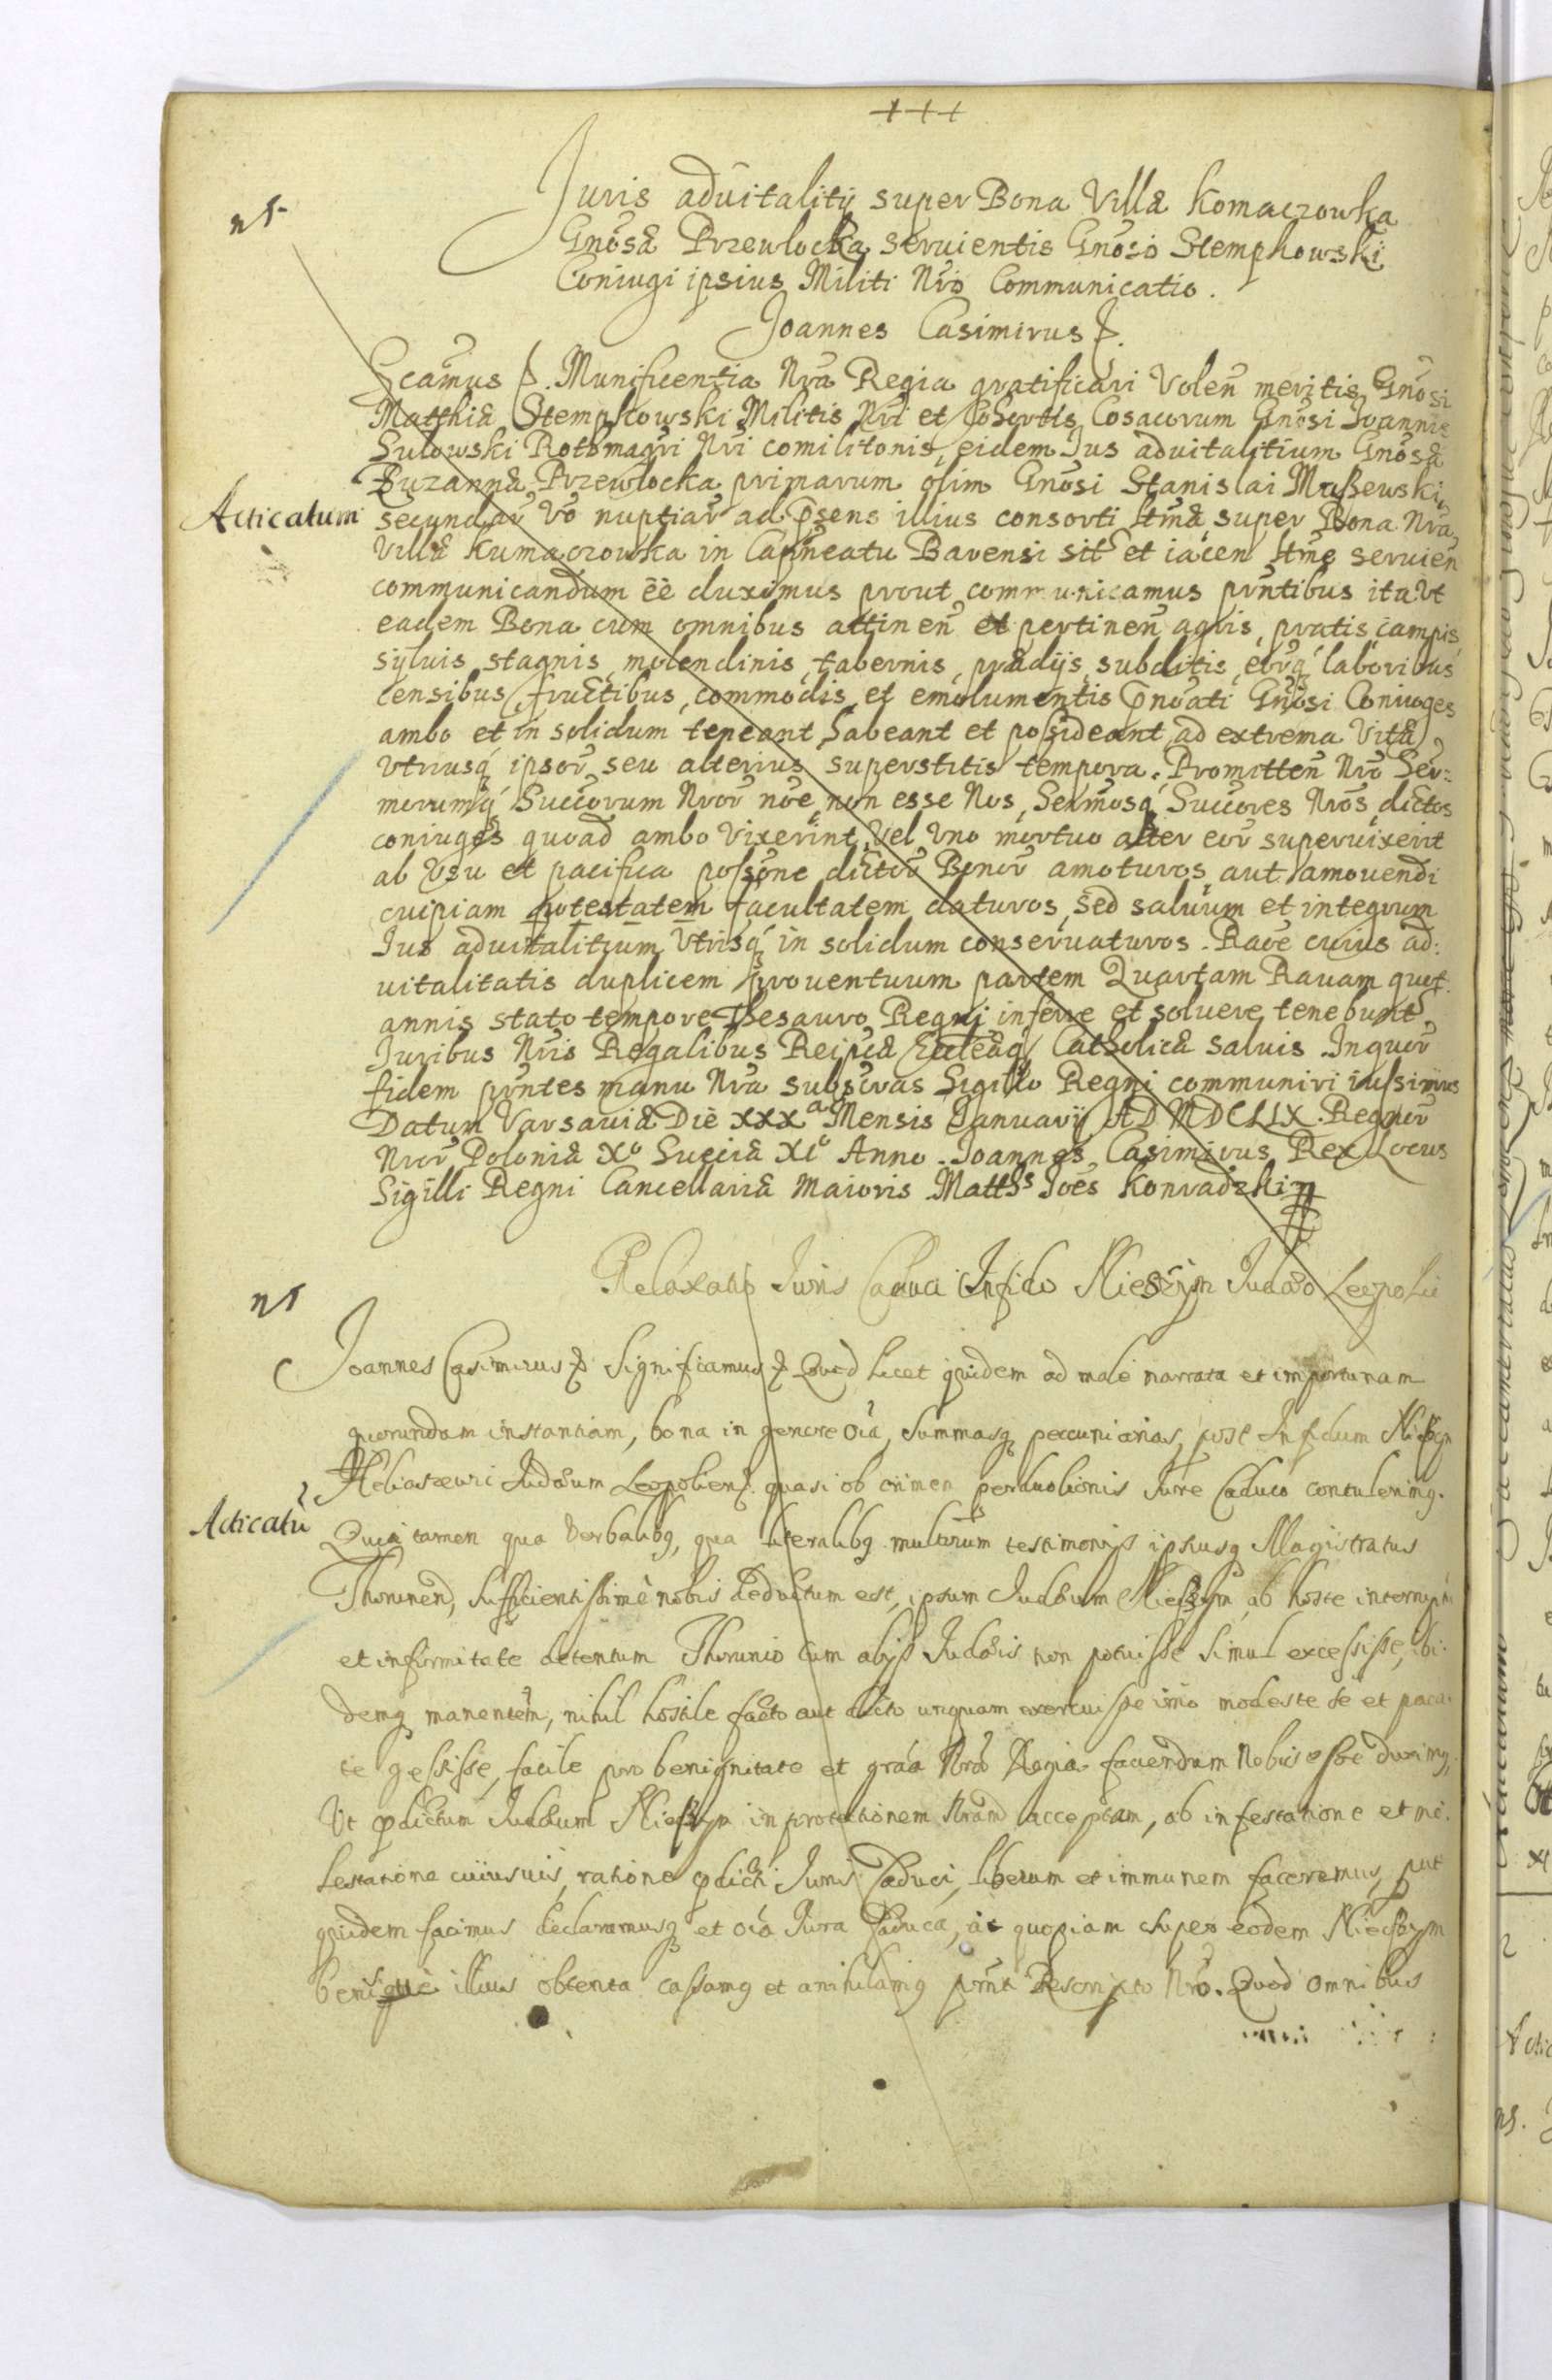 +++
ns
Juris aduitalitij super Bona Villæ Komaczowka
Gnõsæ Przewlocka seruientis Gnõso Stempkowski
Coniugi ipsius Militi Nrõ Communicatio.
Joannes Casimirus
Scamus Munificentia Nra Regia gratificari Volen meritis Gnõsi
Matthiæ Stempkowski Militis Nri et Cohortis Cosacorum Gnõsi Ioannis
Sulowski Rotomagri Nri comilitonis, eidem Ius aduitalitium Gnõsæ
Zuzannæ Przewlocka primarum olim Gnõsi Stanislai Maßewski,
Acticatum
secundar Vo nuptiar ad psens illius consorti stmæ super Bona Nra
Villæ Kumaczowka in Capneatu Barensi sit et iacen stme seruien
communicandum ee duximus prout communicamus pntibus ita Vt
eadem Bona cum omnibus attinen et pertinen agris, pratis campis,
syluis stagnis, molendinis, tabernis, prædijs subditis, eorq laboribus
censibus, fructibus, commodis, et emolumentis pnoati Gnosi Coniuges
ambo et in solidum teneant habeant et possideant ad extrema Vitæ
Vtriusq ipsor seu alterius superstitis tempora. Promitten Nro Ser=
morumq Succorum Nror noe, non esse Nos, Sermosq Succores Nros, dictos
coniuges quoad ambo Vixerint, Vel Vno mortuo alter eor superuixerit
ab Vsu et pacifica possone dictor Bonor amoturos aut amouendi
cuipiam potestatem facultatem daturos, sed saluum et integrum
Ius aduitalitium Vtrisq in solidum conseruaturos. Raoe cuius ad:
uitalitatis duplicem prouentuum partem Quartam Rauam quot
annis stato tempore Thesauro Regni inferre et soluere tenebunt
Iuribus Nris Regalibus Reipcæ Eccleæq Catholicæ saluis. In quor
fidem pntes manu Nra subscras Sigillo Regni communiri iussimus
Datum Varsauiæ Die XXXa Mensis Ianuarij AD MDCLIX. Regnor
Nror Poloniæ Xo Sueciæ XIo Anno. Joannes Casimirus Rex Locus
Sigilli Regni Cancellariæ Maioris Matths Ioes Konradzki
ns
Relaxatio Juris Caduci Infido Judæo Leopoli
Joannes Casimirus Significamus Quod licet quidem ad male narrata et importunam
quorundam instantiam, bona in genere oia, summasq peccuniarias, post Infidum
Judæum Leopolien quasi ob crimen perduolionis Jure Caduco contulerimq.
Acticatu
Quia tamen qua Verbalibq, qua literalibq multorum testimonijs ipsiusq Magistratus
Thorunen, sufficientissimè nobis deductum est, ipsum Judæum ab hoste
et infirmitate detentum Thorunio cum alijs Judæis non potuisse simul excessisse, ibi
demq manentem, nihil hostile facto aut dicto unquam exercuisse imo modeste se et paca
te gessisse, facile pro benignitate et graa Nra Regia fauendum Nobis esse duximq,
Vt pdictum Judæum in protectionem Nram acceptam, ab infestatione et mo
lestatione cuiusuis, ratione pdicti Juris Caduci, liberum et immunem faceremus, put
quidem facimus declaramusq et oia Jura Caduca, a quopiam super eodem
illius obtenta cassamq et anihilamq pnti Rescripto Nro. Quod omnibus